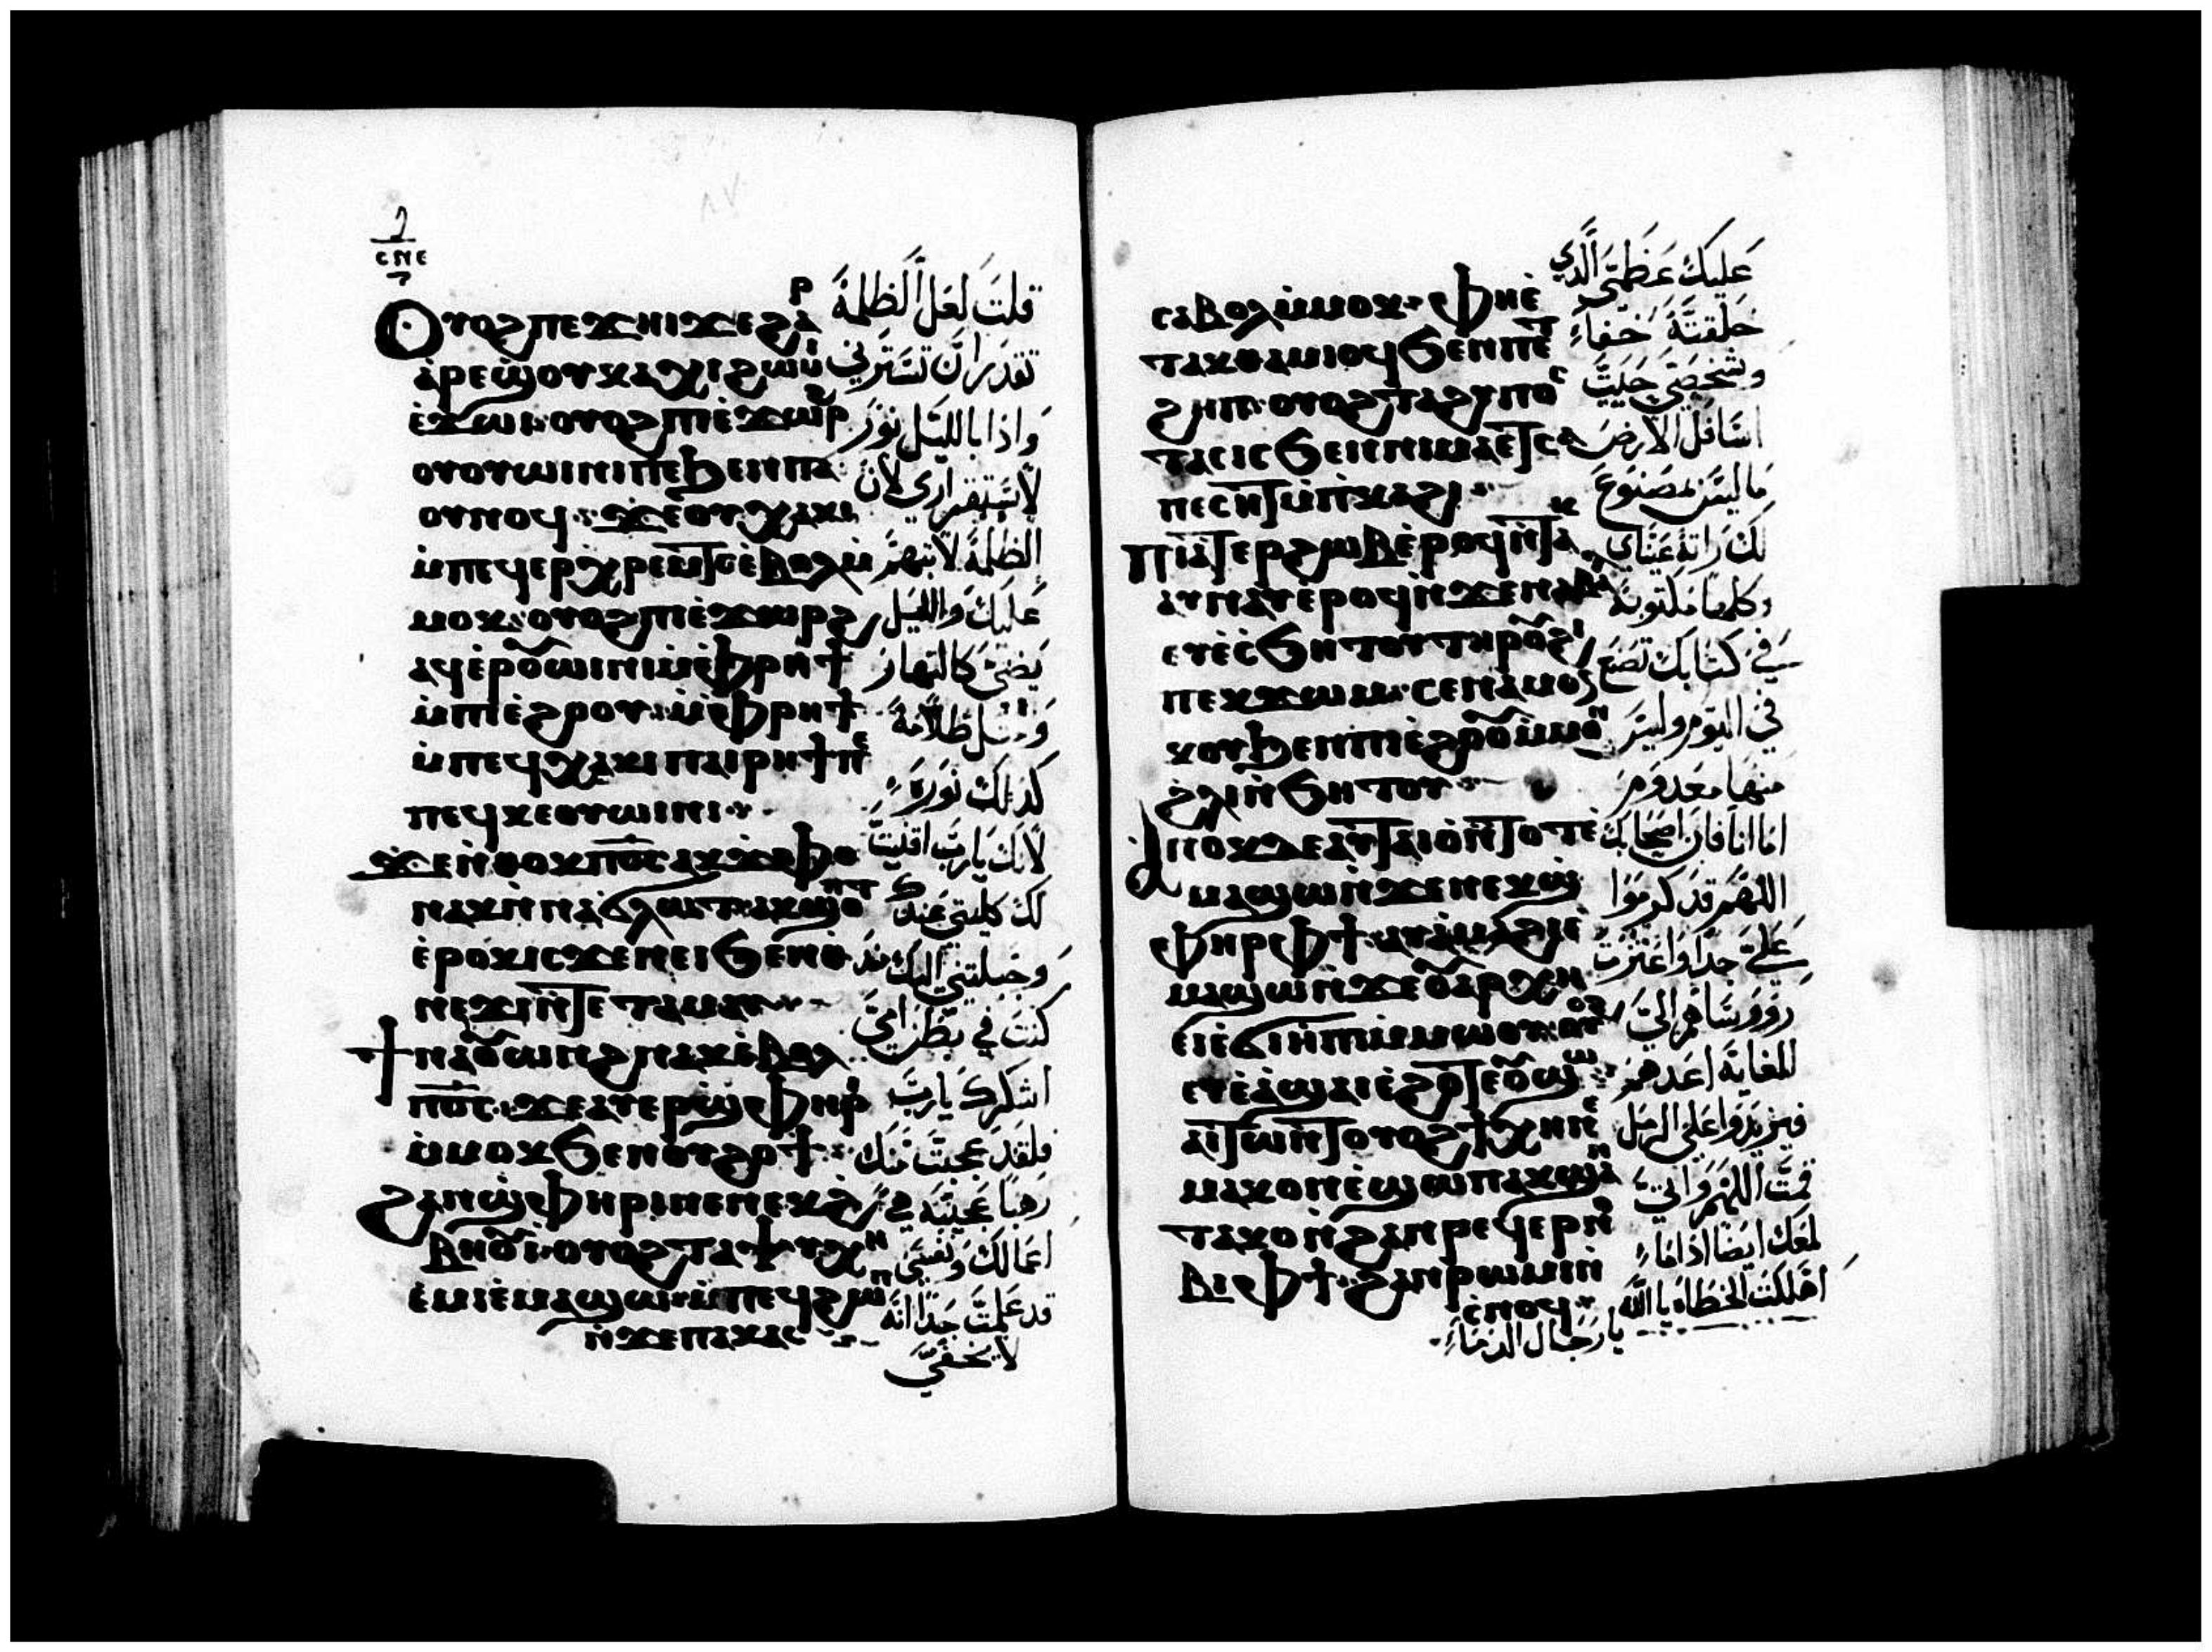 ⲥⲛⲉ
Ⲟⲩⲟϩ ⲡⲉϫⲏⲓ ϫⲉ ϩⲁⲣ
ⲁⲣⲉϣ ⲟⲩⲭⲁⲕⲓ ϩⲱⲙⲓ
ⲉ̀ϫⲱⲓ· ⲟⲩⲟϩ ⲡⲓⲉ̀ϫⲱⲣϩ
ⲟⲩⲟⲩⲱⲓⲛⲓ ⲡⲉ ϧⲉⲛ ⲡⲁ
ⲟⲩⲛⲟϥ· ϫⲉ ⲟⲩⲭⲁⲕⲓ
ⲙ̀ⲡⲉϥⲉⲣⲭⲣⲉⲙⲧⲥ ⲉ̀ⲃⲟⲗ ⲙ̀
ⲙⲟⲕ· ⲟⲩⲟϩ ⲡⲓⲉ̀ϫⲱⲣϩ
ⲁϥⲉ̀ⲣⲟⲩⲱⲓⲛⲓ ⲙ̀ⲫ̀ⲣⲏϯ
ⲙ̀ⲡⲓⲉ̀ϩⲟⲟⲩ· ⲙ̀ⲫ̀ⲣⲏϯ
ⲙ̀ⲡⲉϥⲭⲁⲕⲓ ⲡⲁⲓⲣⲏϯ ⲡⲉ
ⲡⲉϥⲕⲉⲟⲩⲱⲓⲛⲓ·
ϫⲉ ⲛ̀ⲑⲟⲕ ⲡⲟ̅ⲥ̅ ⲁⲕϫ̀ⲫⲟ
ⲛⲁⲕ ⲛ̀ⲛⲁϭⲗⲱⲧ· ⲁⲕϣⲟⲡⲧ
ⲉ̀ⲣⲟⲕ ⲓⲥϫⲉⲛ ⲉⲓϧⲉⲛ ⲑ̀
ⲛⲉϫⲓ ⲛ̀ⲧⲉ ⲧⲁⲙⲁⲩ·
ϯⲛⲁⲟⲩⲱⲛϩ ⲛⲁⲕ ⲉ̀ⲃⲟⲗ
ⲡⲟ̅ⲥ̅· ϫⲉ ⲁⲩⲉⲣϣ̀ⲫⲏⲣⲓ
ⲙ̀ⲙⲟⲕ ϧⲉⲛ ⲟⲩϩⲟϯ·
ϩⲁⲛϣ̀ⲫⲏⲣⲓ ⲛⲉ ⲛⲉⲕϩ̀
ⲃⲏⲟⲩⲓ̀· ⲟⲩⲟϩ ⲧⲁⲯⲩⲭⲏ
ⲉ̀ⲙⲓ ⲉ̀ⲙⲁϣⲱ· ⲙ̀ⲡⲉϥϩⲱⲡ
ⲛ̀ϫⲉ ⲡⲁⲕⲁⲥ
قلت لعل الظلمة
تقدر ان تسترني
واذا بالليل نور
لاستقراري لان
الظلمة لا تبهر
عليك والليل
يضئ كالنهار
ومثل ظلامه
كذلك نوره
لانك يارب اقنيت
لك كليتي عندك
وجبلتني اليك منذ
كنت في بطن امي
اشكرك يارب
فلقد عجبت منك
رهبا عجيبه هي
اعمالك ونفسي
قد علمت جدا انه
لا يخفي
ⲥⲁⲃⲟⲗ ⲙ̀ⲙⲟⲕ· ⲫⲏⲉ̀
ⲧⲁⲕⲑⲁⲙⲓⲟϥ ϧⲉⲛ ⲡⲉⲧ
ϩⲏⲡ· ⲟⲩⲟϩ ⲧⲁϩⲩⲡⲟⲥ
ⲧⲁⲥⲓⲥ ϧⲉⲛ ⲛⲓⲙⲁ ⲉⲧⲥⲁ
ⲡⲉⲥⲏⲧ ⲙ̀ⲡ̀ⲕⲁϩⲓ·
Ⲡⲓⲁⲧⲉⲣϩⲱⲃ ⲉ̀ⲣⲟϥ ⲛ̀ⲧⲁⲕ
ⲁⲩⲛⲁⲩ ⲉ̀ⲣⲟϥ ⲛ̀ϫⲉ ⲛⲁⲃⲁⲗ
ⲉⲩⲉ̀ⲥϧⲏⲧⲟⲩ ⲧⲏⲣⲟⲩ ϩⲓ
ⲡⲉⲕϫⲱⲙ· ⲥⲉⲛⲁⲙⲟⲩ
ⲕⲟⲩ ϧⲉⲛ ⲡⲓⲉ̀ϩⲟⲟⲩ ⲙ̀ⲙⲟⲛ
ϩ̀ⲗⲓ ⲛ̀ϧⲏⲧⲟⲩ·
Ⲁⲛⲟⲕ ⲇⲉ ⲁⲩⲧⲁⲓⲟ ⲛ̀ⲧⲟⲧ ⲉ̀
ⲙⲁϣⲱ ⲛ̀ϫⲉ ⲛⲉⲕϣ̀
ⲫⲏⲣ ⲫϯ· ⲁⲩⲁ̀ⲙⲁϩⲓ ⲉ̀
ⲙⲁϣⲱ ⲛ̀ϫⲉ ⲟⲩⲁⲣⲭⲏ
ⲉⲓⲉ̀ϭⲓⲏⲡⲓ ⲙ̀ⲙⲱⲟⲩ· ⲟⲩⲟϩ
ⲉⲩⲉ̀ⲁ̀ϣⲁⲓ ⲉ̀ϩⲟⲧⲉ ⲟⲩϣⲱ
ⲁⲓⲧⲱⲛⲧ ⲟⲩⲟϩ ϯⲭⲏ ⲛⲉ
ⲙⲁⲕ ⲟⲛ ⲉ̀ϣⲱⲡ ⲁⲕϣⲁⲛ
ⲧⲁⲕⲟ ⲛ̀ϩⲁⲛⲣⲉϥⲉⲣⲛⲟ
ⲃⲓ ⲫϯ· ϩⲁⲛⲣⲱⲙⲓ ⲛ̀
ⲥ̀ⲛⲟϥ·
عليك عظمتي الذي
خلقته خفاء
وشخصتي حييت
اسافل الارض
ما ليس بمصنوع
لك راته عيناي
وكلها مكتوبة
في كتابك تصنع
في اليوم وليس
منها معدوم
اما انا فان اصحابك
اللهم قد كرموا
علي جدا واعتزت
رووساهم الي
للغاية اعدهم
فيزيدوا على الرمل
قمت اللهم واني
لمعك ايضا اذا ما
اهلكت الخطاه يا الله
يا رجال الدماء